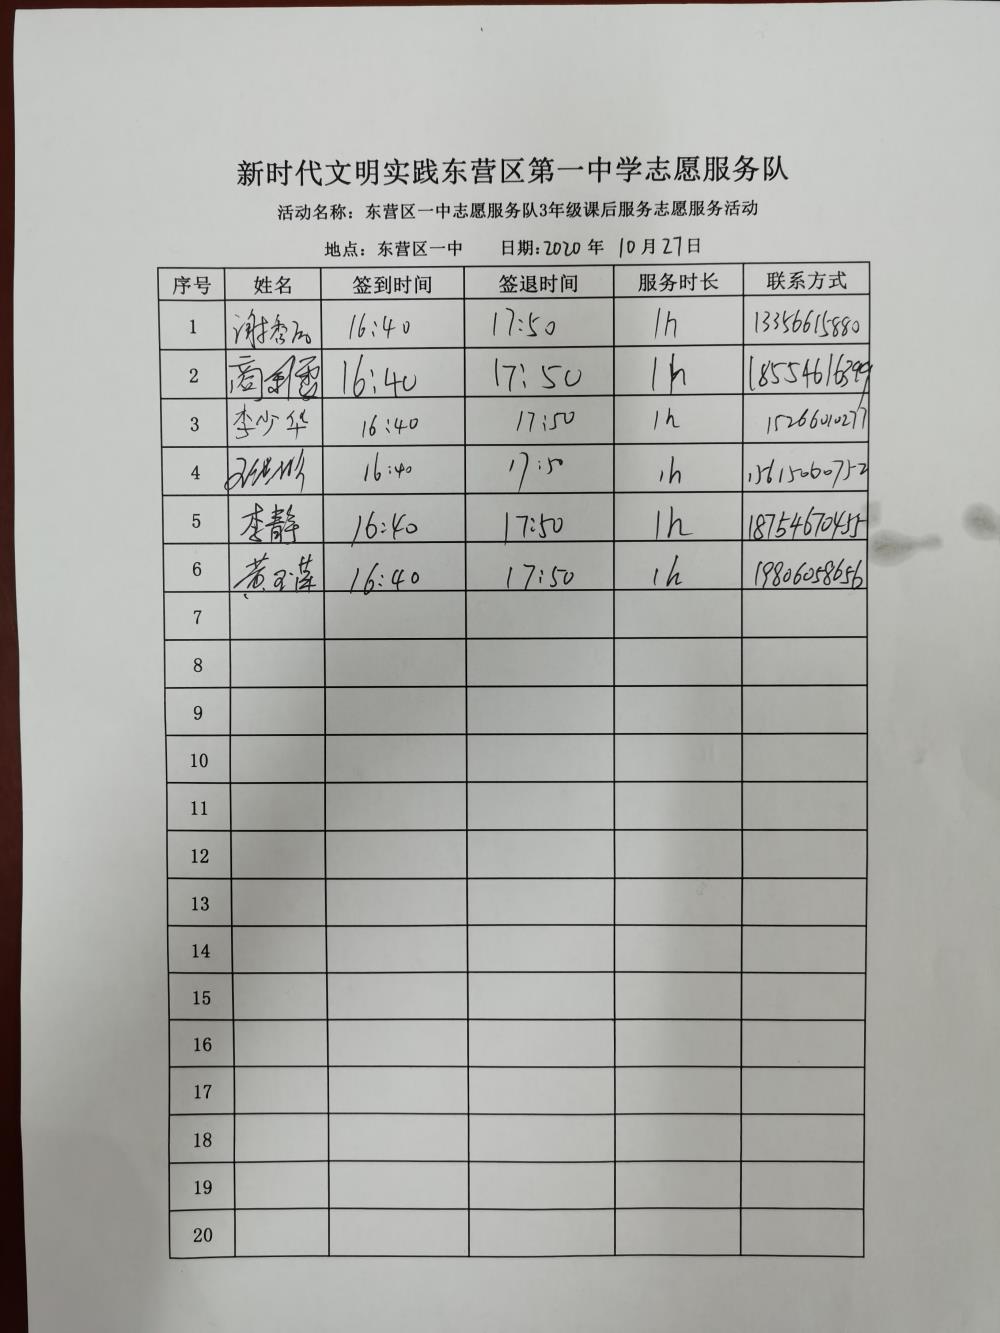 新时代文明实践东营区第一中学志愿服务队
活动名称：东营区一中志愿服务队3年级课后服务志愿服务活动
地点：东营区一中 日期:2020年 10月27日
序号 姓名 签到时间 签退时间 服务时长 联系方式
1 谢秀 16:40 17:50 1h 13356615880
2 商 16:40 17:50 1h
3 李少华 16:40 17:50 1h 15266010277
4 16:40 17:50 1h 15615060752
5 李静 16:40 17:50 1h 18754670455
6 黄玉萍 16:40 17:50 1h 19806058656
7
8
9
10
11
12
13
14
15
16
17
18
19
20